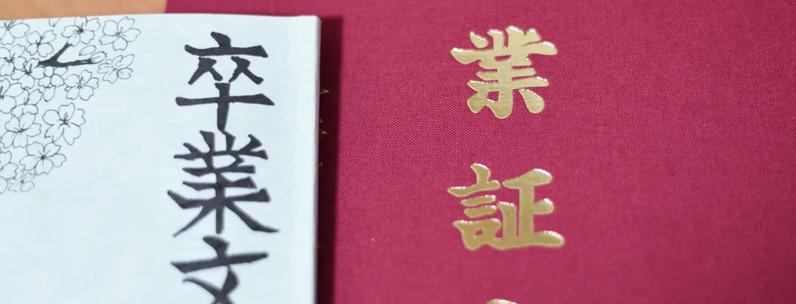 卒業文
業証